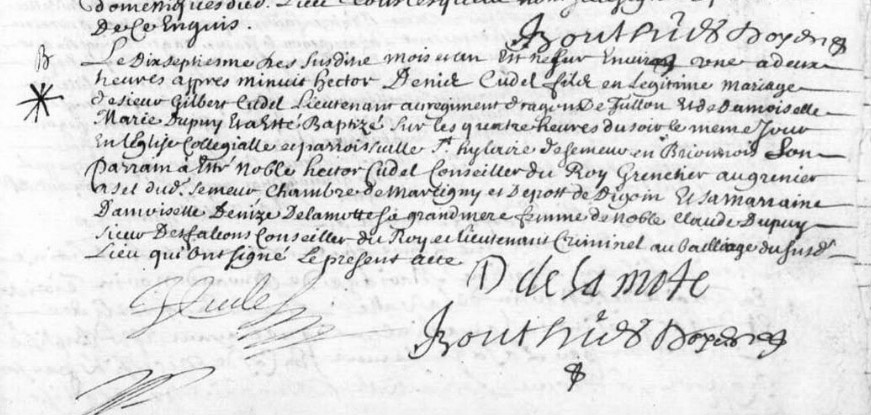 De Ce Enquis
Bouthier Doyen
B
Le Dixseptieme des susdits mois et an Est né sur Environ une a deux
heures appres minuit hector Denis Cudel fils en Legitime mariage
de sieur Gilbert Cudel Lieutenant au regiment dragons De fullon Et de Damoiselle
Marie Dupuy Et a Etté Baptizé sur les quatre heures du soir le meme Jour
En l'Eglise Collegialle et parroissialle St hylaire de semeur en Brionnois Son
Parrain à Etté Noble hector Cudel Conseiller du Roy Grenetier au grenier
a sel dud. semeur Chambre de Martigny et Depost de Digoin Et sa marraine
Damoiselle Denize Delamotte sa grand mere femme de Noble Claude Dupuy
sieur Desfallons Conseiller du Roy et lieutenant Criminel au bailliage du susd.
Lieu qui ont signé Le present acte
Cudel
D de la mote
Bouthier Doyen